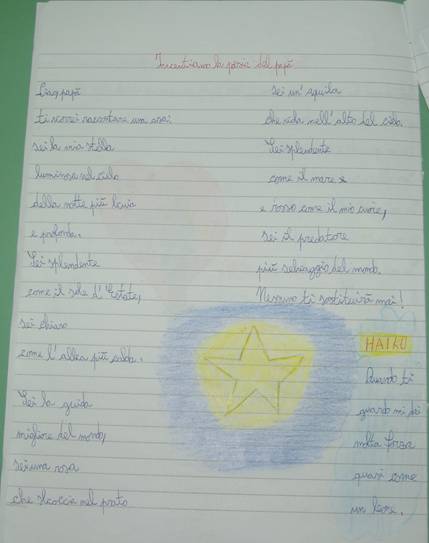 Inventiamo la poesia del papà
Ciao papà
ti vorrei raccontare una cosa:
sei la mia stella
luminosa nel cielo
della notte più buia
e profonda.
Sei splendente
come il sole d'Estate,
sei chiaro
come l'alba più calda.
Sei la guida
migliore del mondo,
sei una rosa
che sboccia nel prato
Sei un'aquila
che vola nell'alto del cielo.
Sei splendente
come il mare
e rosso come il mio cuore,
sei il predatore
più selvaggio del mondo.
Nessuno ti sostituirà mai!
HAIKU
Quando ti
guardo mi dai
molta forza
quasi come
un leone.